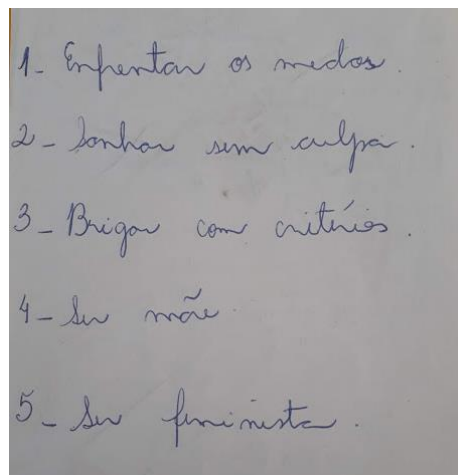 1- Enfrentar os medos.
2- Sonhar sem culpa.
3- Brigar com critérios.
4- Ser mãe.
5- Ser feminista.